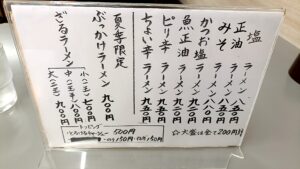 塩ラーメン 八五〇円
正油ラーメン 八五〇円
みそラーメン 八八〇円
かつお塩ラーメン 八八〇円
魚正油ラーメン 九〇〇円
ピリ辛ラーメン 九五〇円
ちょい辛ラーメン 九五〇円
☆大盛は全て200円増
夏季限定
ぶっかけラーメン 九〇〇円
ざるラーメン
小(一玉)七〇〇円
中(一玉半)八〇〇円
大(二玉)九〇〇円
トッピング
とろけるチャーシュー 500円
のり150円